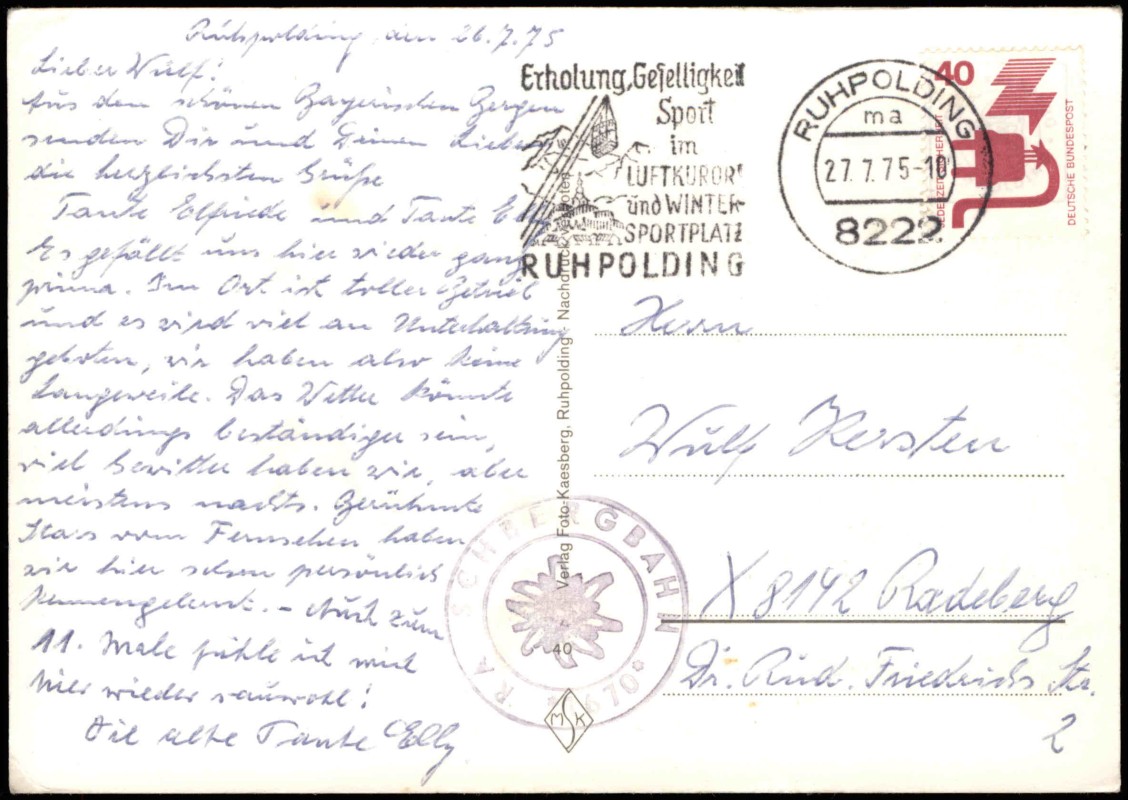 Ruhpolding, den 26.7.75
Lieber Wulf!
Aus den schönen Bayerischen Bergen
senden Dir und Deinen Lieben
die herzlichsten Grüße
Tante Elfriede und Tante Elly
Es gefällt uns hier wieder ganz
prima. Im Ort ist toller Betrieb
und es wird viel an Unterhaltung
geboten, wir haben also keine
Langeweile. Das Wetter könnte
allerdings beständiger sein,
viel Gewitter haben wir, aber
meistens nachts. Berühmte
Stars vom Fernsehen haben
wir hier schon persönlich
kennengelernt. – Auch zum
11. Male fühle ich mich
hier wieder sauwohl!
Die alte Tante Elly
Erholung, Geselligkeit
Sport
im
LUFTKURORT
und WINTER-
SPORTPLATZ
RUHPOLDING
RUHPOLDING
ma
27.7.75-10
8222
40
JEDERZEIT SICHERHEIT
DEUTSCHE BUNDESPOST
Verlag Foto-Kaesberg, Ruhpolding Nachdruck verboten
40
MSK
RAUSCHBERGBAHN
1670
Herrn
Wulf Kersten
X 8142 Radeberg
Dr. Rud. Friedrichs Str.
2